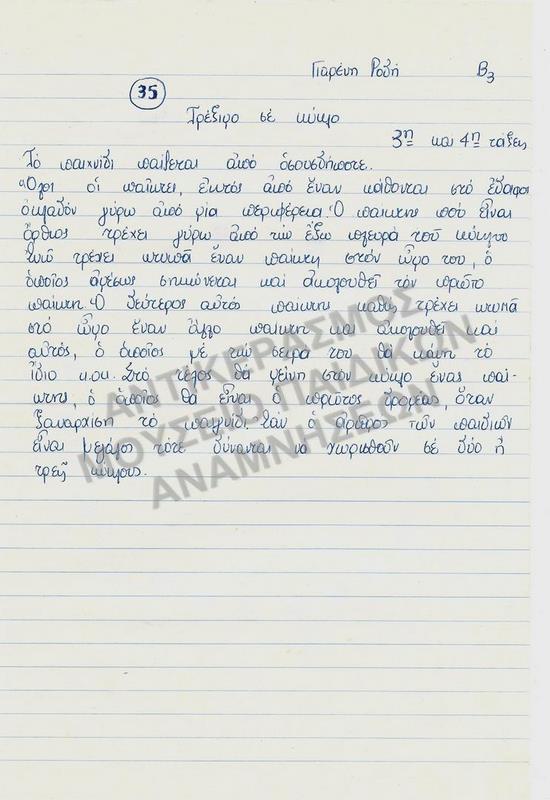 Γιαρένη Ροδή Β3
35
Τρέξιμο σέ κύκλο
3η καί 4η τάξεις
Τό παιχνίδι παίζεται ἀπό ὁσουσδήποτε.
Ὅλοι οἱ παῖκτες, ἐκτός ἀπό ἕναν κάθονται στό ἔδαφος
ὀκλαδόν γύρω ἀπό μία περιφέρεια. Ὁ παίκτης πού εἶναι
ὄρθιος τρέχει γύρω ἀπό τήν ἔξω πλευρά τοῦ κύκλου
ἐνῶ τρέχει κτυπᾶ ἕναν παίκτη στόν ὦμο του, ὁ
ὁποῖος ἀμέσως σηκώνεται καί ἀκολουθεῖ τόν πρῶτο
παίκτη. Ὁ δεύτερος αὐτός παίκτης καθώς τρέχει κτυπᾶ
στό ὦμο ἕναν ἄλλο παίκτη καί ἀκολουθεῖ καί
αὐτός, ὁ ὁποῖος μέ τήν σειρά του θά κάνη τό
ἴδιο κ.ο.κ. Στό τέλος θά μείνη στόν κύκλο ἕνας παί-
κτης, ὁ ὁποῖος θά εἶναι ὁ πρῶτος δρομέας, ὅταν
ξαναρχίση τό παιχνίδι. Ἐάν ὁ ἀριθμός τῶν παιδιῶν
εἶναι μεγάλος τότε δύναται νά χωρισθοῦν σέ δύο ἤ
τρεῖς κύκλους.
ΑΝΤΙΚΕΡΑΣΜΟΣ
ΜΟΥΣΕΙΟ ΠΑΙΔΙΚΩΝ
ΑΝΑΜΝΗΣΕΩΝ